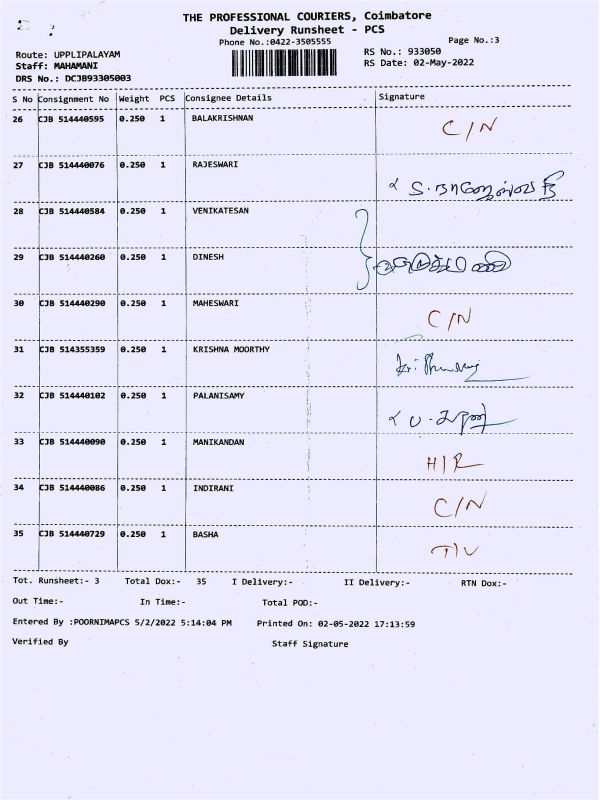 THE PROFESSIONAL COURIERS, Coimbatore
Delivery Runsheet - PCS
Phone No.:0422-3505555
Page No.:3
Route: UPPLIPALAYAM
RS No.: 933050
Staff: MAHAMANI
RS Date: 02-May-2022
DRS No.: DCJB93305003
S No Consignment No Weight PCS Consignee Details Signature
26 CJB 514440595 0.250 1 BALAKRISHNAN C/N
27 CJB 514440076 0.250 1 RAJESWARI
28 CJB 514440584 0.250 1 VENIKATESAN
29 CJB 514440260 0.250 1 DINESH
30 CJB 514440290 0.250 1 MAHESWARI C/N
31 CJB 514355359 0.250 1 KRISHNA MOORTHY
32 CJB 514440102 0.250 1 PALANISAMY
33 CJB 514440090 0.250 1 MANIKANDAN H/R
34 CJB 514440086 0.250 1 INDIRANI C/N
35 CJB 514440729 0.250 1 BASHA
Tot. Runsheet:- 3 Total Dox:- 35 I Delivery:- II Delivery:- RTN Dox:-
Out Time:- In Time:- Total POD:-
Entered By :POORNIMAPCS 5/2/2022 5:14:04 PM Printed On: 02-05-2022 17:13:59
Verified By Staff Signature